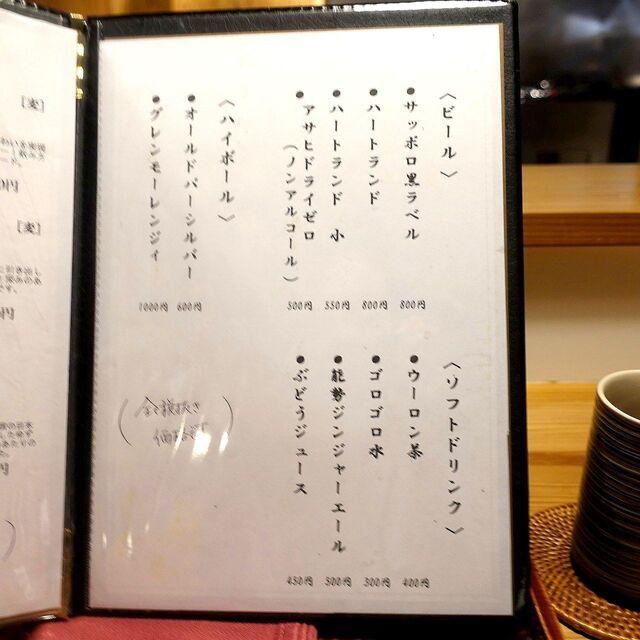 〈ビール〉
●サッポロ黒ラベル 800円
●ハートランド 800円
●ハートランド 小 550円
●アサヒドライゼロ
（ノンアルコール） 500円
〈ハイボール〉
●オールドパーシルバー 600円
●グレンモーレンジィ 1000円
〈ソフトドリンク〉
●ウーロン茶 400円
●ゴロゴロ水 300円
●能勢ジンジャーエール 500円
●ぶどうジュース 450円
(全て税抜き
価格です)
[麦]
[麦]